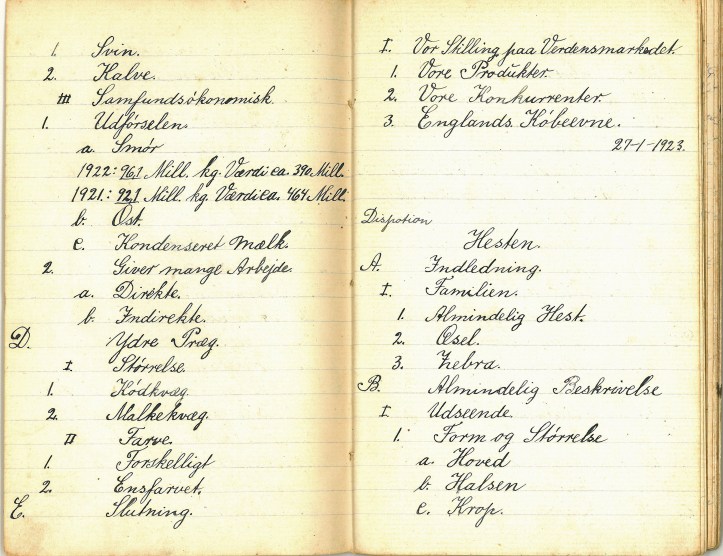 1. Svin.
2. Kalve.
III Samfundsökonomisk.
1. Udförselen.
a. Smör
1922: 96,1 Mill. kg. Værdi ca. 390 Mill.
1921.: 92,1 Mill. kg. Værdi ca. 464 Mill.
b. Ost.
c. Kondenseret Mælk.
2. Giver mange Arbejde.
a. Direkte.
b. Indirekte.
D. Ydre Præg.
I Störrelse.
1. Ködkvæg.
2. Malkekvæg.
II Farve.
1. Forskelligt
2. Ensfarvet.
E. Slutning.
I. Vor Stilling paa Verdensmarkedet.
1. Vore Produkter.
2. Vore Konkurrenter.
3. Englands Köbeevne.
27-1-1923.
Dispotion
Hesten.
A. Indledning.
I. Familien.
1. Almindelig Hest.
2. Æsel.
3. Zebra.
B. Almindelig Beskrivelse
I Udseende.
1. Form og Störrelse
a. Hoved
b. Halsen
c. Krop.